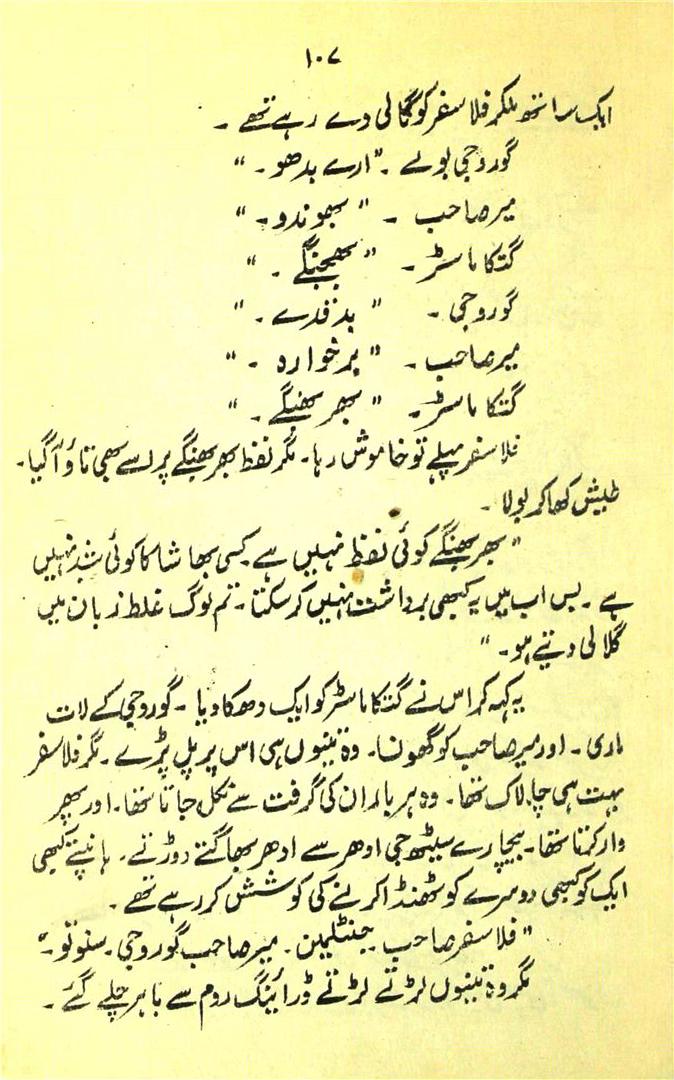 ۱۰۷
ایک ساتھ ملکر فلاسفر کو گالی دے رہے تھے ۔
گوروجی بولے ۔ "ارے بدھو ۔ "
میر صاحب ۔ " بھوندو ۔ "
گتکا ماسٹر ۔ " بھجنگے ۔ "
گوروجی ۔ " بدقدے ۔ "
میر صاحب ۔ " برخوارہ ۔ "
گتکا ماسٹر ۔ " بھر بھنگے ۔ "
فلاسفر پہلے تو خاموش رہا ۔ مگر لفظ بھر بھنگے پر اسے بھی تاؤ آگیا ۔
طیش کھا کر بولا ۔
" بھر بھنگے کوئی لفظ نہیں ہے کسی بھاشا کا کوئی شبد نہیں
ہے ۔ بس اب میں یہ کبھی برداشت نہیں کر سکتا ۔ تم لوگ غلط زبان میں
گالی دیتے ہو ۔ "
یہ کہہ کر اس نے گتکا ماسٹر کو ایک دھکا دیا ۔ گوروجی کے لات
ماری ۔ اور میر صاحب کو گھونسا ۔ وہ تینوں ہی اس پر پل پڑے ۔ مگر فلاسفر
بہت ہی چالاک تھا ۔ وہ ہر بار ان کی گرفت سے نکل جاتا تھا ۔ اور پھر
وار کرتا تھا ۔ بیچارے سیٹھ جی ادھر سے ادھر بھاگتے دوڑتے ۔ ہانپتے کبھی
ایک کو کبھی دوسرے کو ٹھنڈا کرنے کی کوشش کر رہے تھے ۔
" فلاسفر صاحب جنٹلمین ۔ میر صاحب گوروجی ۔ سنو تو ۔ "
مگر وہ تینوں لڑتے لڑتے ڈرائینگ روم سے باہر چلے گئے ۔